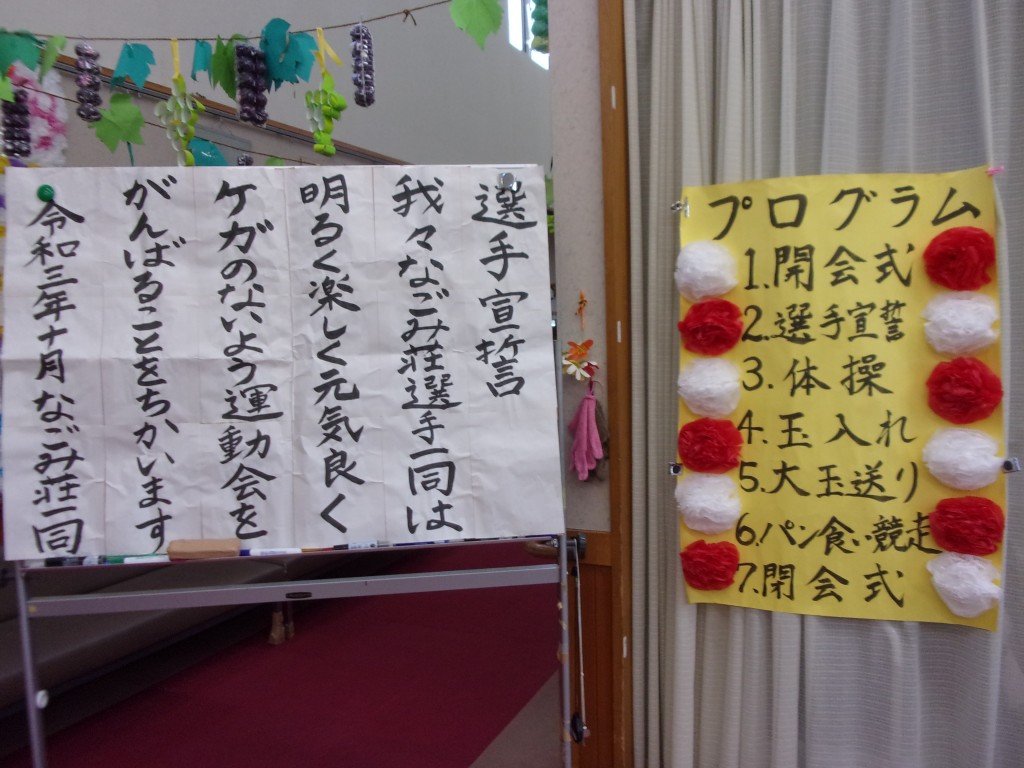 選手宣誓
我々なごみ荘選手一同は
明るく楽しく元気良く
ケガのないよう運動会を
がんばることをちかいます
令和三年十月なごみ荘一同
プログラム
1.開会式
2.選手宣誓
3.体操
4.玉入れ
5.大玉送り
6.パン食い競走
7.閉会式